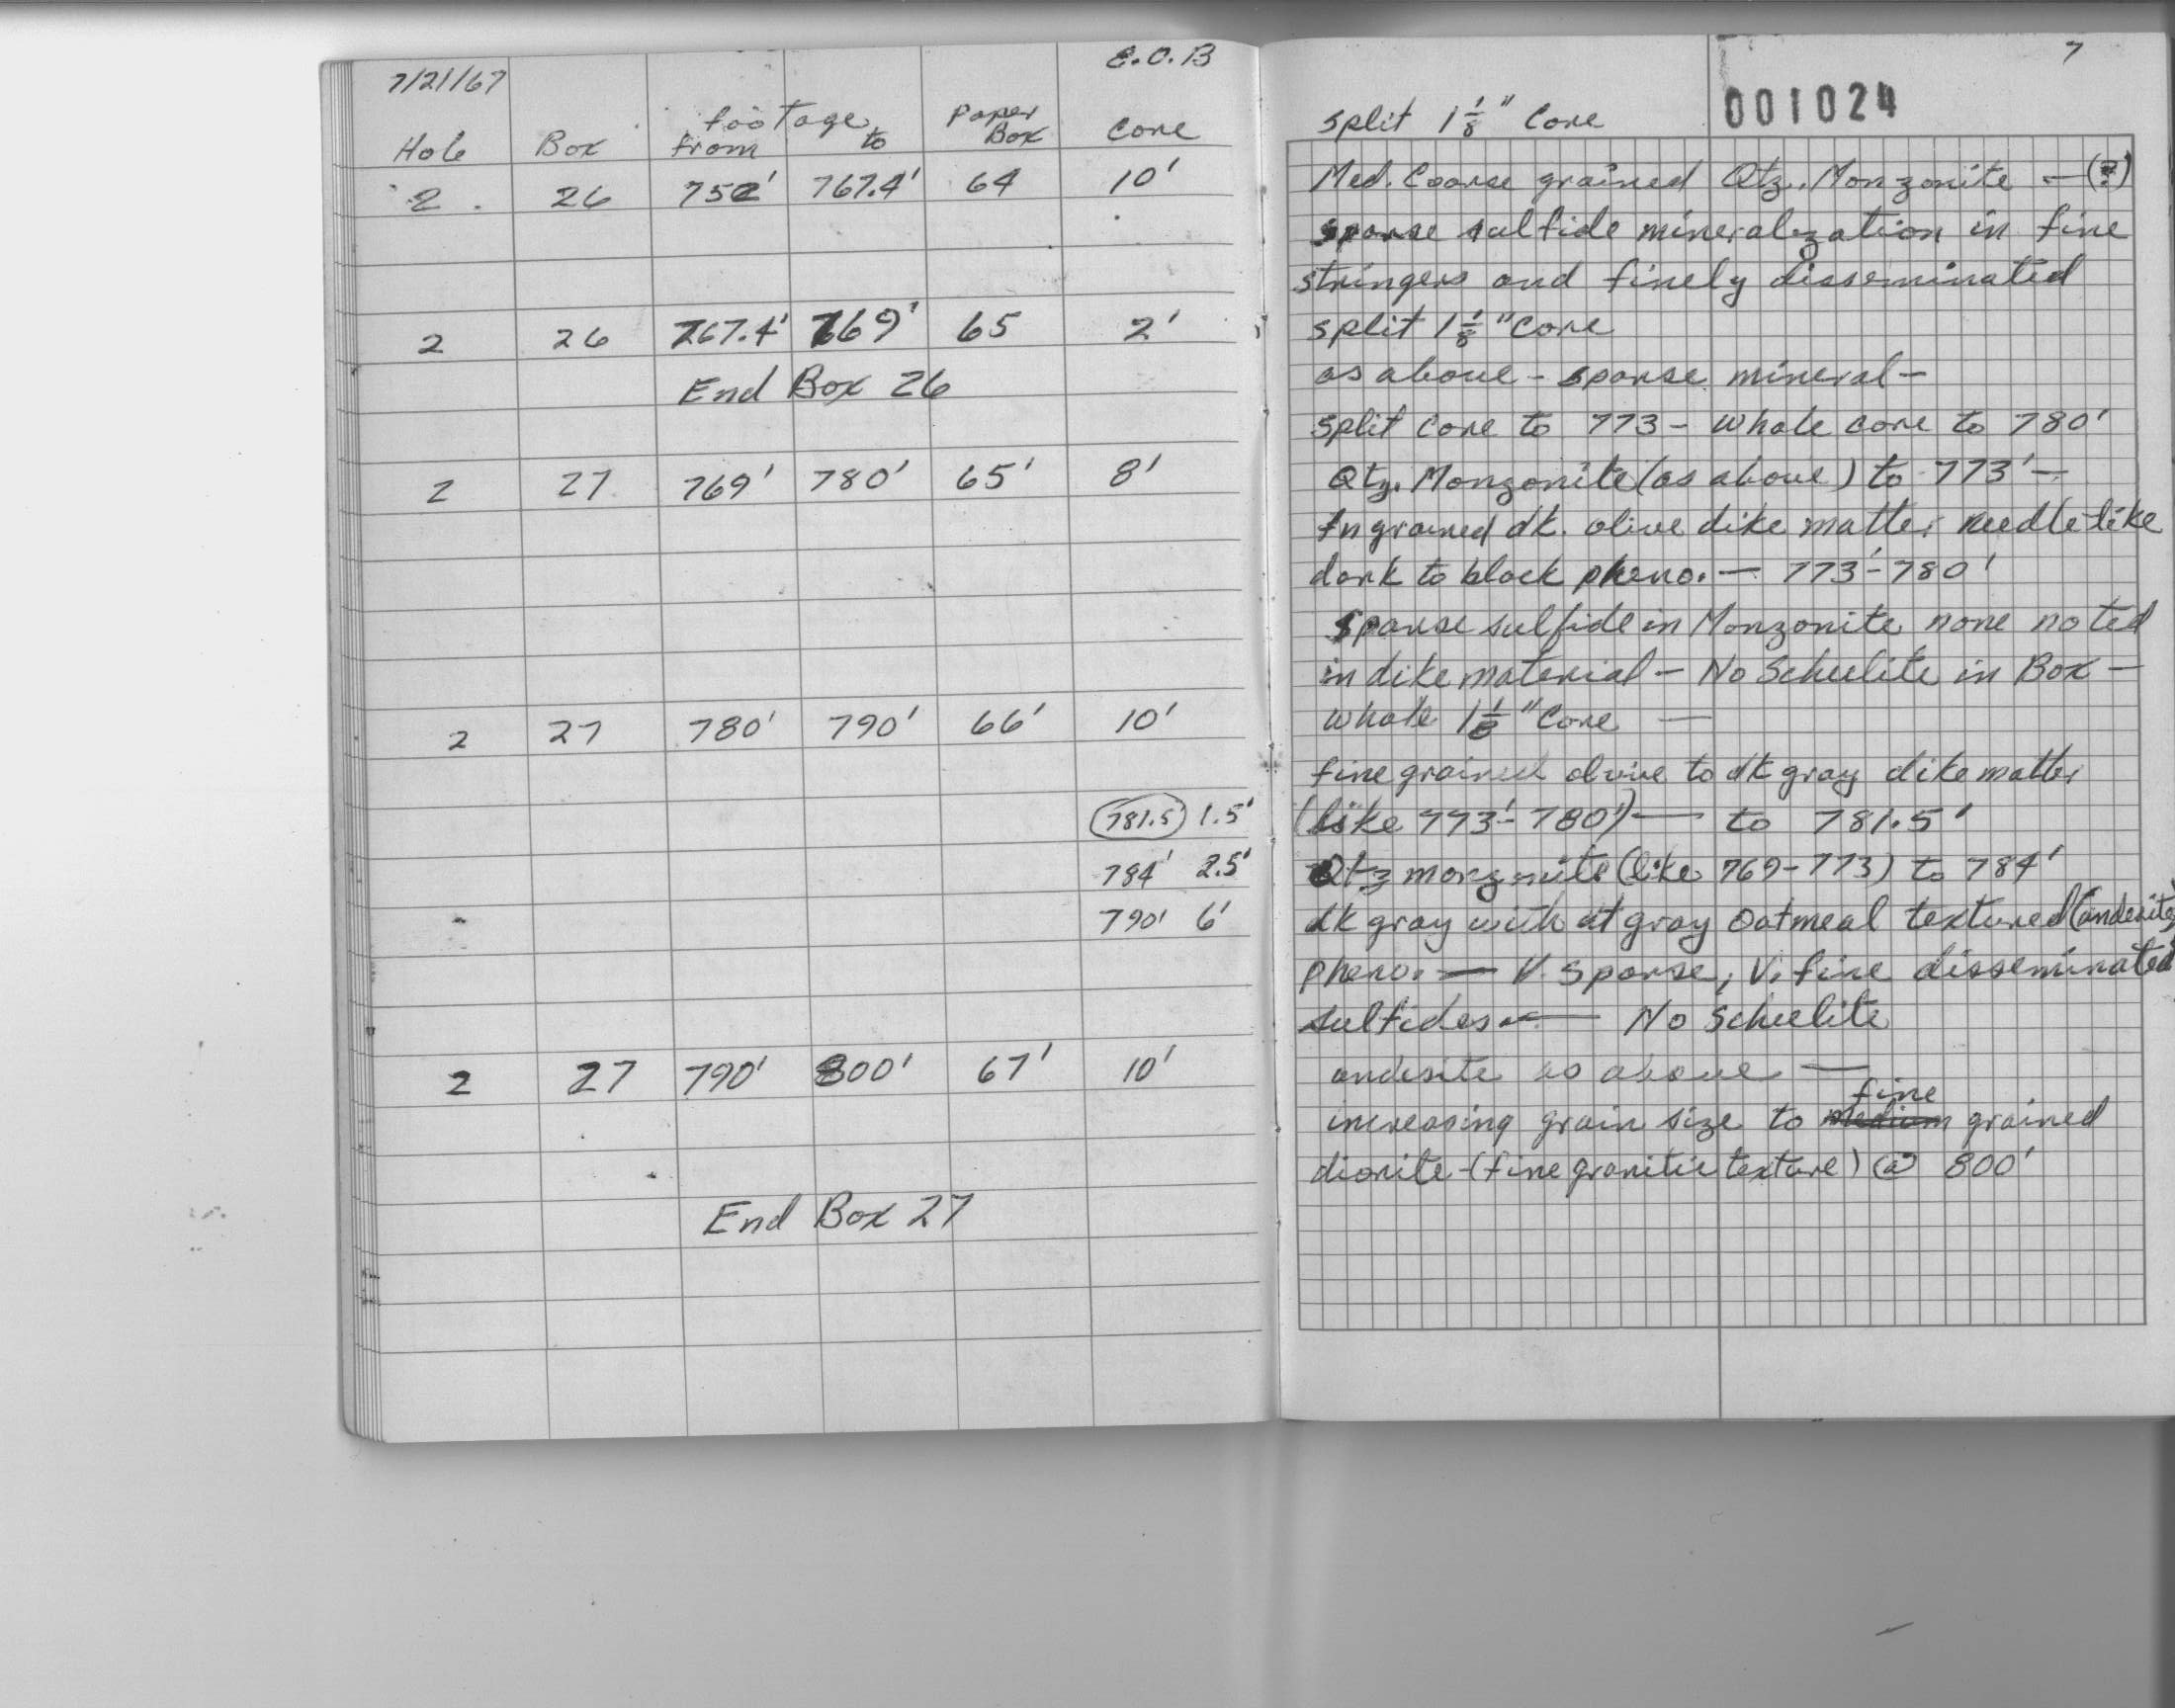 7/21/67
E.O.B
footage
Paper
Hole Box from to Box Core
2 26 752' 767.4' 64 10'
2 26 767.4' 769' 65 2'
End Box 26
2 27 769' 780' 65' 8'
2 27 780' 790' 66' 10'
781.5 1.5'
784' 2.5'
790' 6'
2 27 790' 800' 67' 10'
End Box 27
7
001024
split 1 1/8" Core
Med. Coarse grained Qtz. Monzonite — (?)
sparse sulfide mineralization in fine
stringers and finely disseminated
split 1 1/8" Core
as above - sparse mineral -
split core to 773 - whole core to 780'
Qtz. Monzonite (as above) to 773' —
fn grained dk. olive dike matter needle like
dark to black pheno. — 773'-780'
sparse sulfide in Monzonite none noted
in dike material - No Scheelite in Box -
whole 1 1/8" Core —
fine grained olive to dk gray dike matter
(like 773'-780') — to 781.5'
Qtz monzonite (like 769-773) to 784'
dk gray with lt gray oatmeal textured (andesite)
pheno. — V. sparse, V. fine disseminated
sulfides — No Scheelite
andesite as above —
fine
increasing grain size to medium grained
diorite - (fine granitic texture) @ 800'